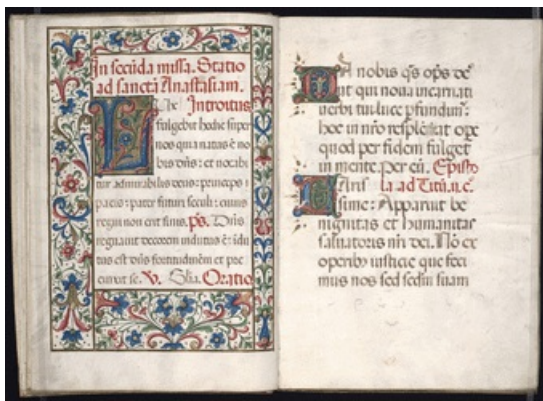 In secūda missa. Statio
ad sanctā Anastasiam.
Lux Introitus
fulgebit hodie super
nos quia natus ē no
bis dn̄s: et vocabi
tur admirabilis deus: princeps
pacis: pater futuri seculi: cuius
regni non erit finis. p̄s. Dn̄s
regnauit decorem indutus ē: īdu
tus est dn̄s fortitudinem et pre
cinxit se. V. Glia. Oratio
Da nobis q̄s op̄s de'
ut qui noua incarnati
verbi tui luce pfundim':
hoc in nr̄o resplēdeat ope
quod per fidem fulget
in mente. Per eū. Episto
Caris la ad Titū. ii. c.
sime: Apparuit be
nignitas et humanitas
saluatoris nr̄i dei. Nō ex
operib' iusticie que feci
mus nos sed sedm̄ suam